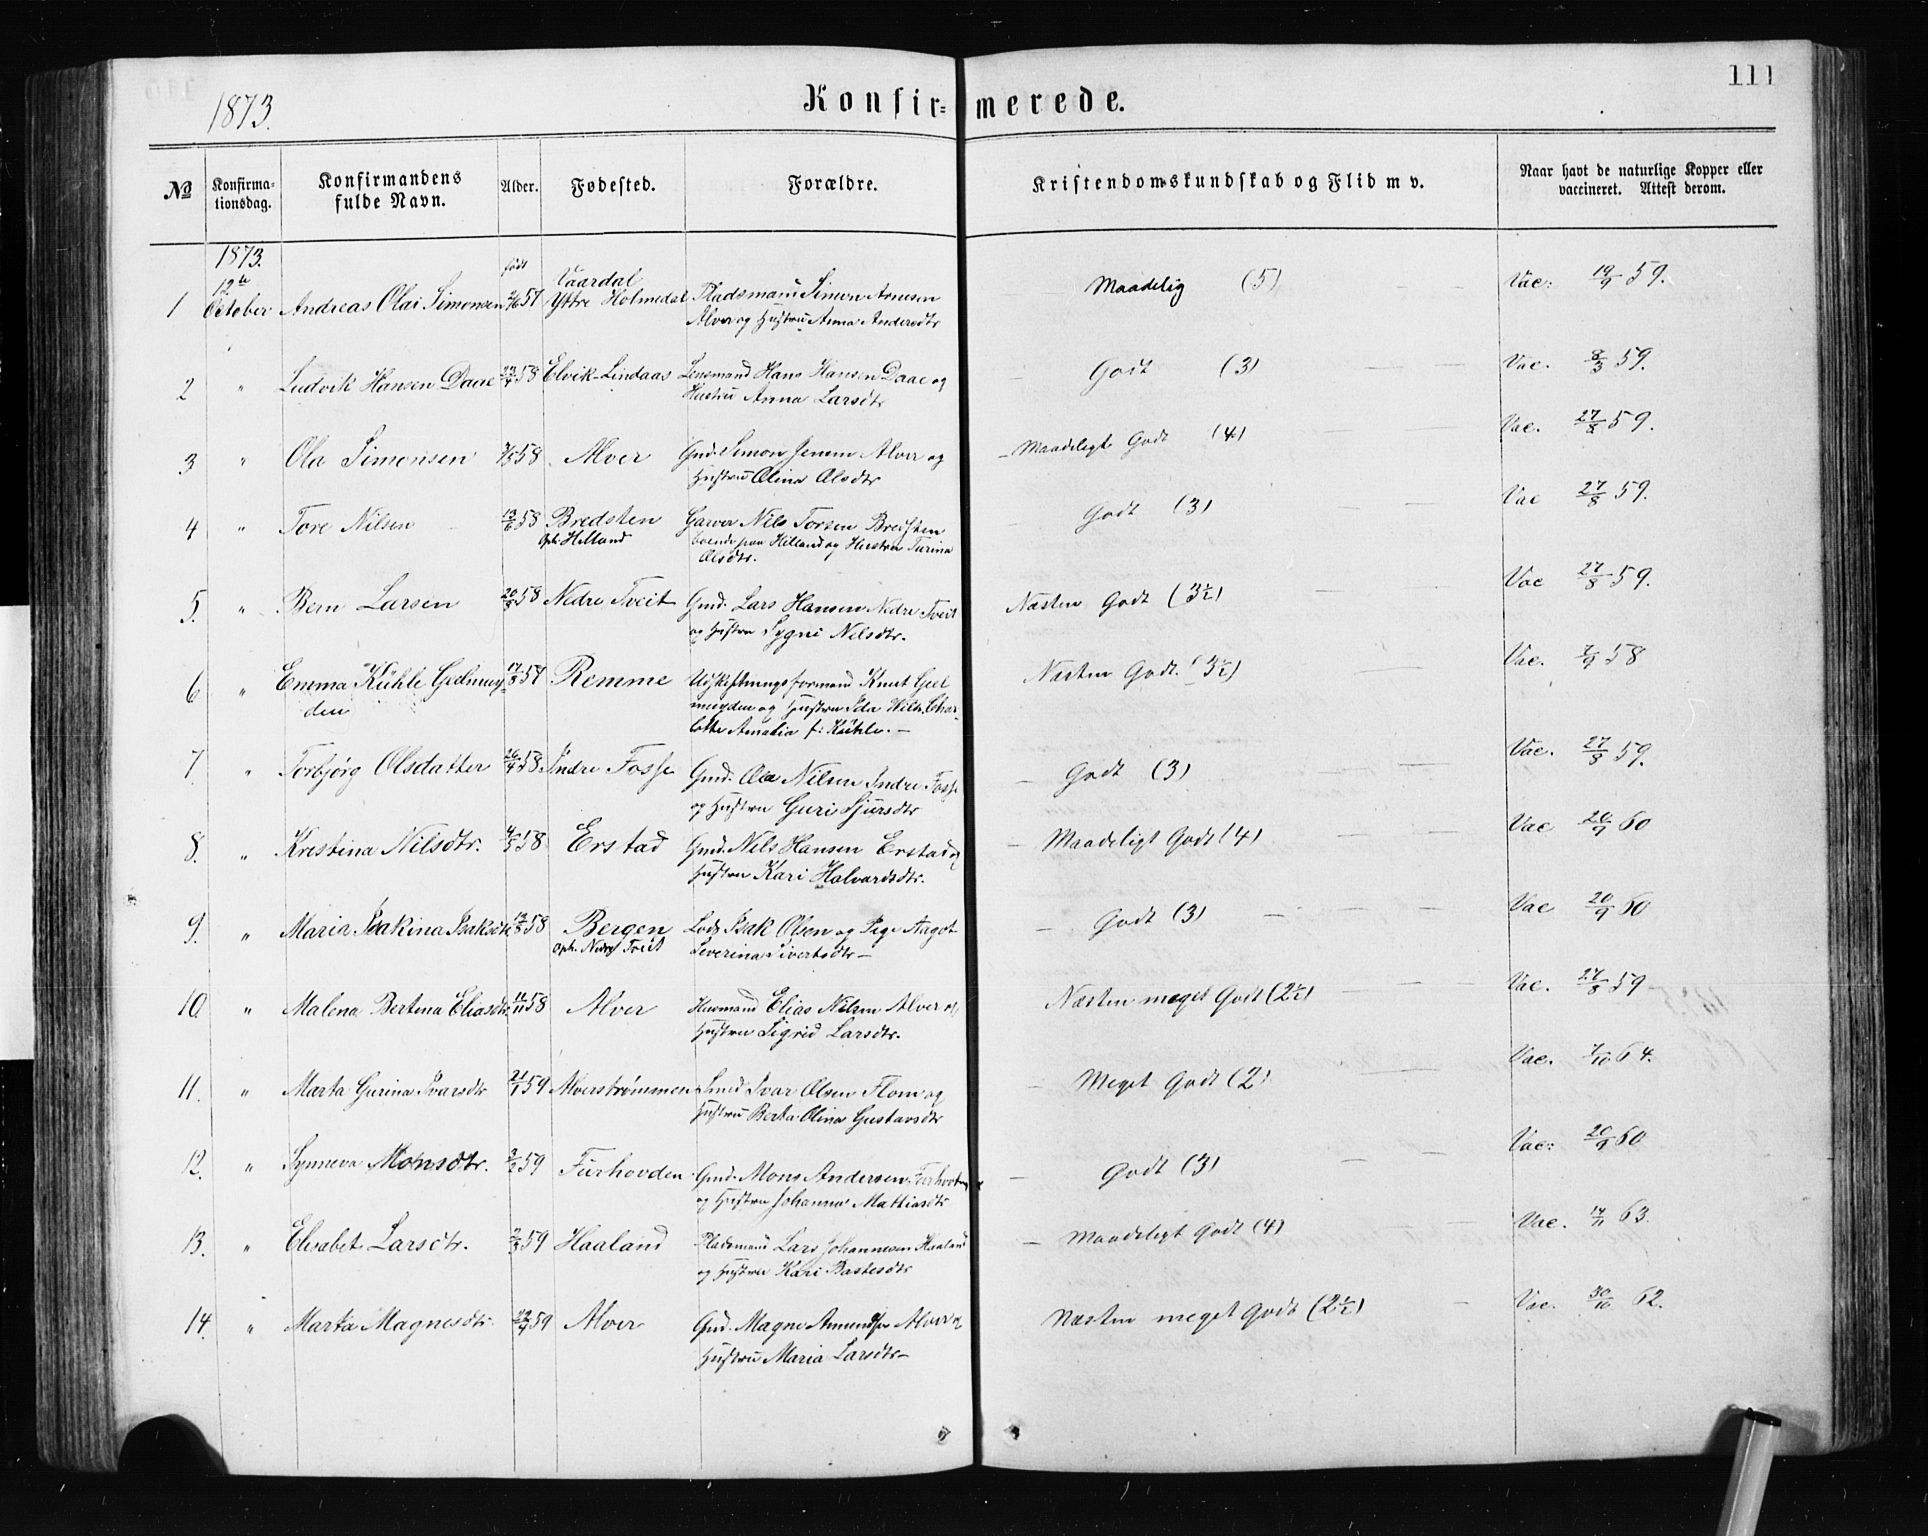 111
1873.
Konfir= merede.
No Konfirma-tionsdag. Konfirmandens fulde Navn. Alder. Fødested. Forældre. Kristendomskundskab og Flid m v. Naar havt de naturlige Kopper eller vaccineret. Attest derom.
1873. født
12te Vaardal
1 October Andreas Olai Simonsen 57 Yttre Holmedal Pladsmand Simon Arnesen Maadelig (5) Vac: 19/9 59.
Alver og Hustru Anna Andersdtr
2 " Ludvik Hansen Daae 58 Elvik-Lindaas Lensmand Hans Hansen Daae og Godt (3) Vac. 8/3 59.
Hustru Anna Larsdtr
3 " Ola Simonsen 58 Alver Gmd. Simon Jensen Alver og Maadeligt Godt (4) Vac. 27/8 59.
Hustru Olina Olsdtr
4 " Tore Nilsen 13/6 58 Bredsten Garver Nils Torsen Bredsten Godt (3) Vac 27/8 59.
oph. Helland boende paa Helland og Hustru Turina
Olsdtr.
5. " Bern Larsen 58 Nedre Tveit Gmd. Lars Hansen Nedre Tveit Næsten Godt (3½) Vac 27/8 59.
og Hustru Sygni Nilsdtr.
6 " Emma Kühle Geelmuy- 57 Remme Udskiftningsformand Knut Geel Næsten Godt. (3½) Vac. 7/9 58
den muyden og Hustru Ida Wilh. Char-
lotte Amalia f: Kühle. —
7. " Torbjørg Olsdatter 26/4 58 Indre Fosse Gmd. Ola Nilsen Indre Fosse Godt (3) Vac. 27/8 59.
og Hustru Guri Sjursdtr
8. " Kristina Nilsdtr. 4/5 58 Erstad Gmd. Nils Hansen Erstad og Maadeligt Godt (4) Vac 20/9 60
Hustru Kari Halvardsdtr.
9. " Maria Isakina Isaksdtr 58 Bergen Lods Isak Olsen og Pige Aagot Godt (3) Vac 20/9 60
oph. Nedre Tveit Severina Sivertsdtr —
10. " Malena Bertina Eliasdtr. 11/11 58 Alver Husmand Elias Nilsen Alver og Næsten meget Godt (2½) Vac. 27/8 59
Hustru Sigrid Larsdtr.
11. " Marta Gurina Ivarsdtr 21/1 59 Alverstrømmen Smed Ivar Olsen Flom og Meget Godt (2) Vac. 7/10 64.
Hustru Berta Olina Gustavsdtr
12. " Synneva Monsdtr. 59 Furhovden Gmd. Mons Andersen Furhovden Godt (3) Vac: 20/9 60
og Hustru Johanna Mathiasdtr
13. " Elisabet Larsdtr. 59 Haaland Pladsmand Lars Johannesen Haaland Maadeligt Godt (4) Vac. 14/11 63.
og Hustru Kari Bastesdtr
14. " Marta Magnesdtr. 59 Alver Gmd. Magne Amundsen Alver og Næsten meget Godt (2½) Vac. 30/10 62.
Hustru Maria Larsdtr —